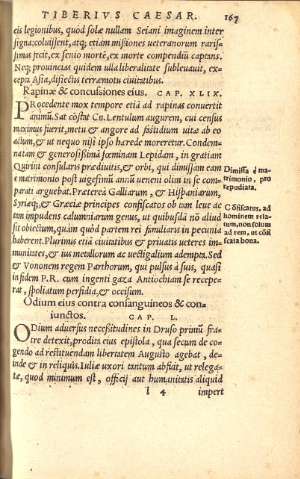 TIBERIVS CAESAR. 167
eis legionibus, quòd solæ nullam Seiani imaginem inter
signa coluissent, atq; etiam missiones ueteranorum raris-
simas fecit, ex senio mortē, ex morte compendiū captans.
Neq; prouincias quidem ulla liberalitate subleuauit, ex-
cepta Asia, disiectis terræmotu ciuitatibus.
Rapinæ & concussiones eius. CAP. XLIX.
PRocedente mox tempore etiā ad rapinas conuertit
animū. Sat costat Cn. Lentulum augurem, cui census
maximus fuerit, metu & angore ad fastidium uitæ ab eo
actum, & ut nequo nisi ipso hærede moreretur. Condemna-
tam & generosissimā fœminam Lepidam, in gratiam
Quirini consularis prædiuitis, & orbi, qui dimissam eam
è matrimonio post uigesimū annū ueneni olim in se com-
parati arguebat. Præterea Galliarum, & Hispaniarum,
Syriæq; & Græciæ principes confiscatos ob tam leue ac
tam impudens calumniarum genus, ut quibusdā nō aliud
sit obiectum, quàm quòd partem rei familiaris in pecunia
haberent. Plurimis etiā ciuitatibus & priuatis ueteres im-
munitates, & ius metallorum ac uectigalium adempta. Sed
& Vononem regem Parthorum, qui pulsus à suis, quasi
in fidem P.R. cum ingenti gaza Antiochiam se recepe-
rat, spoliatum perfidia, & occisum.
Dimissa è ma-
trimonio, pro
repudiata.
Cōfiscatos, ad
hominem rela-
tum, non solum
ad rem, ut cōfi
scata bona.
Odium eius contra consanguineos & con-
iunctos. CAP. L.
ODium aduersus necessitudines in Druso primū fra-
tre detexit, prodita eius epistola, qua secum de co-
gendo ad restituendam libertatem Augusto agebat, de-
inde & in reliquis. Iuliæ uxori tantum abfuit, ut relega-
tæ, quod minimum est, officij aut humanitatis aliquid
I 4 impert